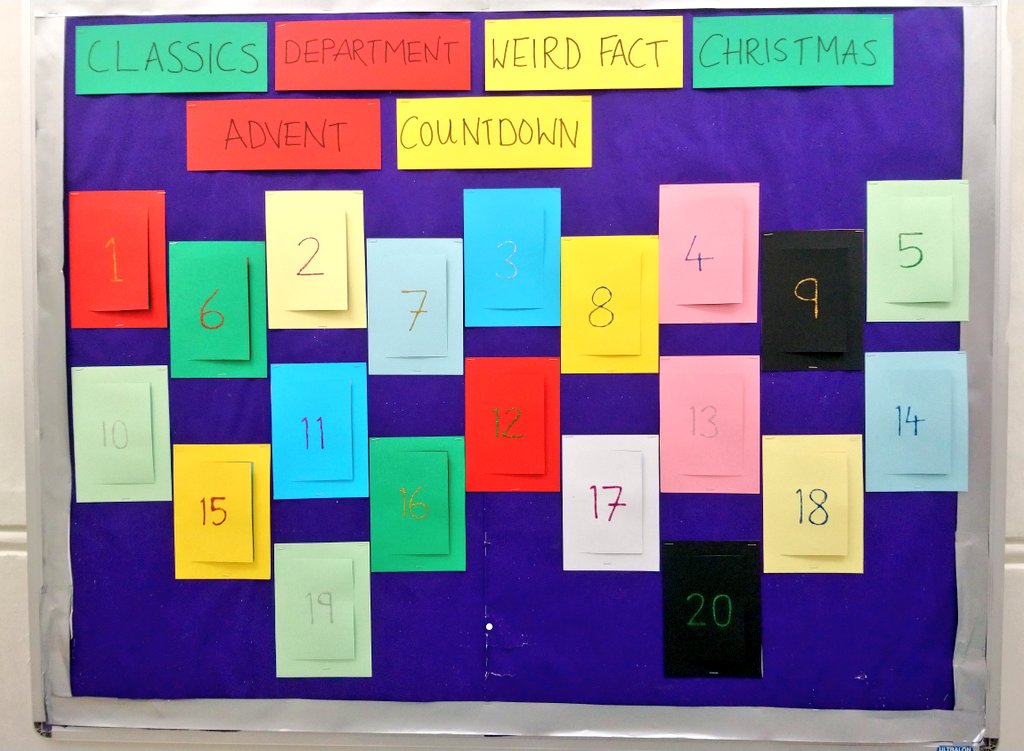 CLASSICS DEPARTMENT WEIRD FACT CHRISTMAS
ADVENT COUNTDOWN
1 2 3 4 5
6 7 8 9
10 11 12 13 14
15 16 17 18
19 20
ULTRALON